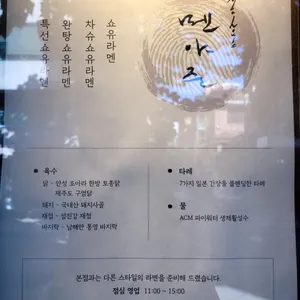 멘야준
쇼유라멘
차슈쇼유라멘
완탕쇼유라멘
특선쇼유라멘
● 육수
닭 - 안성 조아라 한방 토종닭
제주도 구엄닭
돼지 - 국내산 돼지사골
재첩 - 섬진강 재첩
바지락 - 남해안 통영 바지락
● 타레
7가지 일본 간장을 블렌딩한 타레
● 물
ACM 파이워터 생체활성수
본점과는 다른 스타일의 라멘을 준비해 드렸습니다.
점심 영업 11:00 ~ 15:00